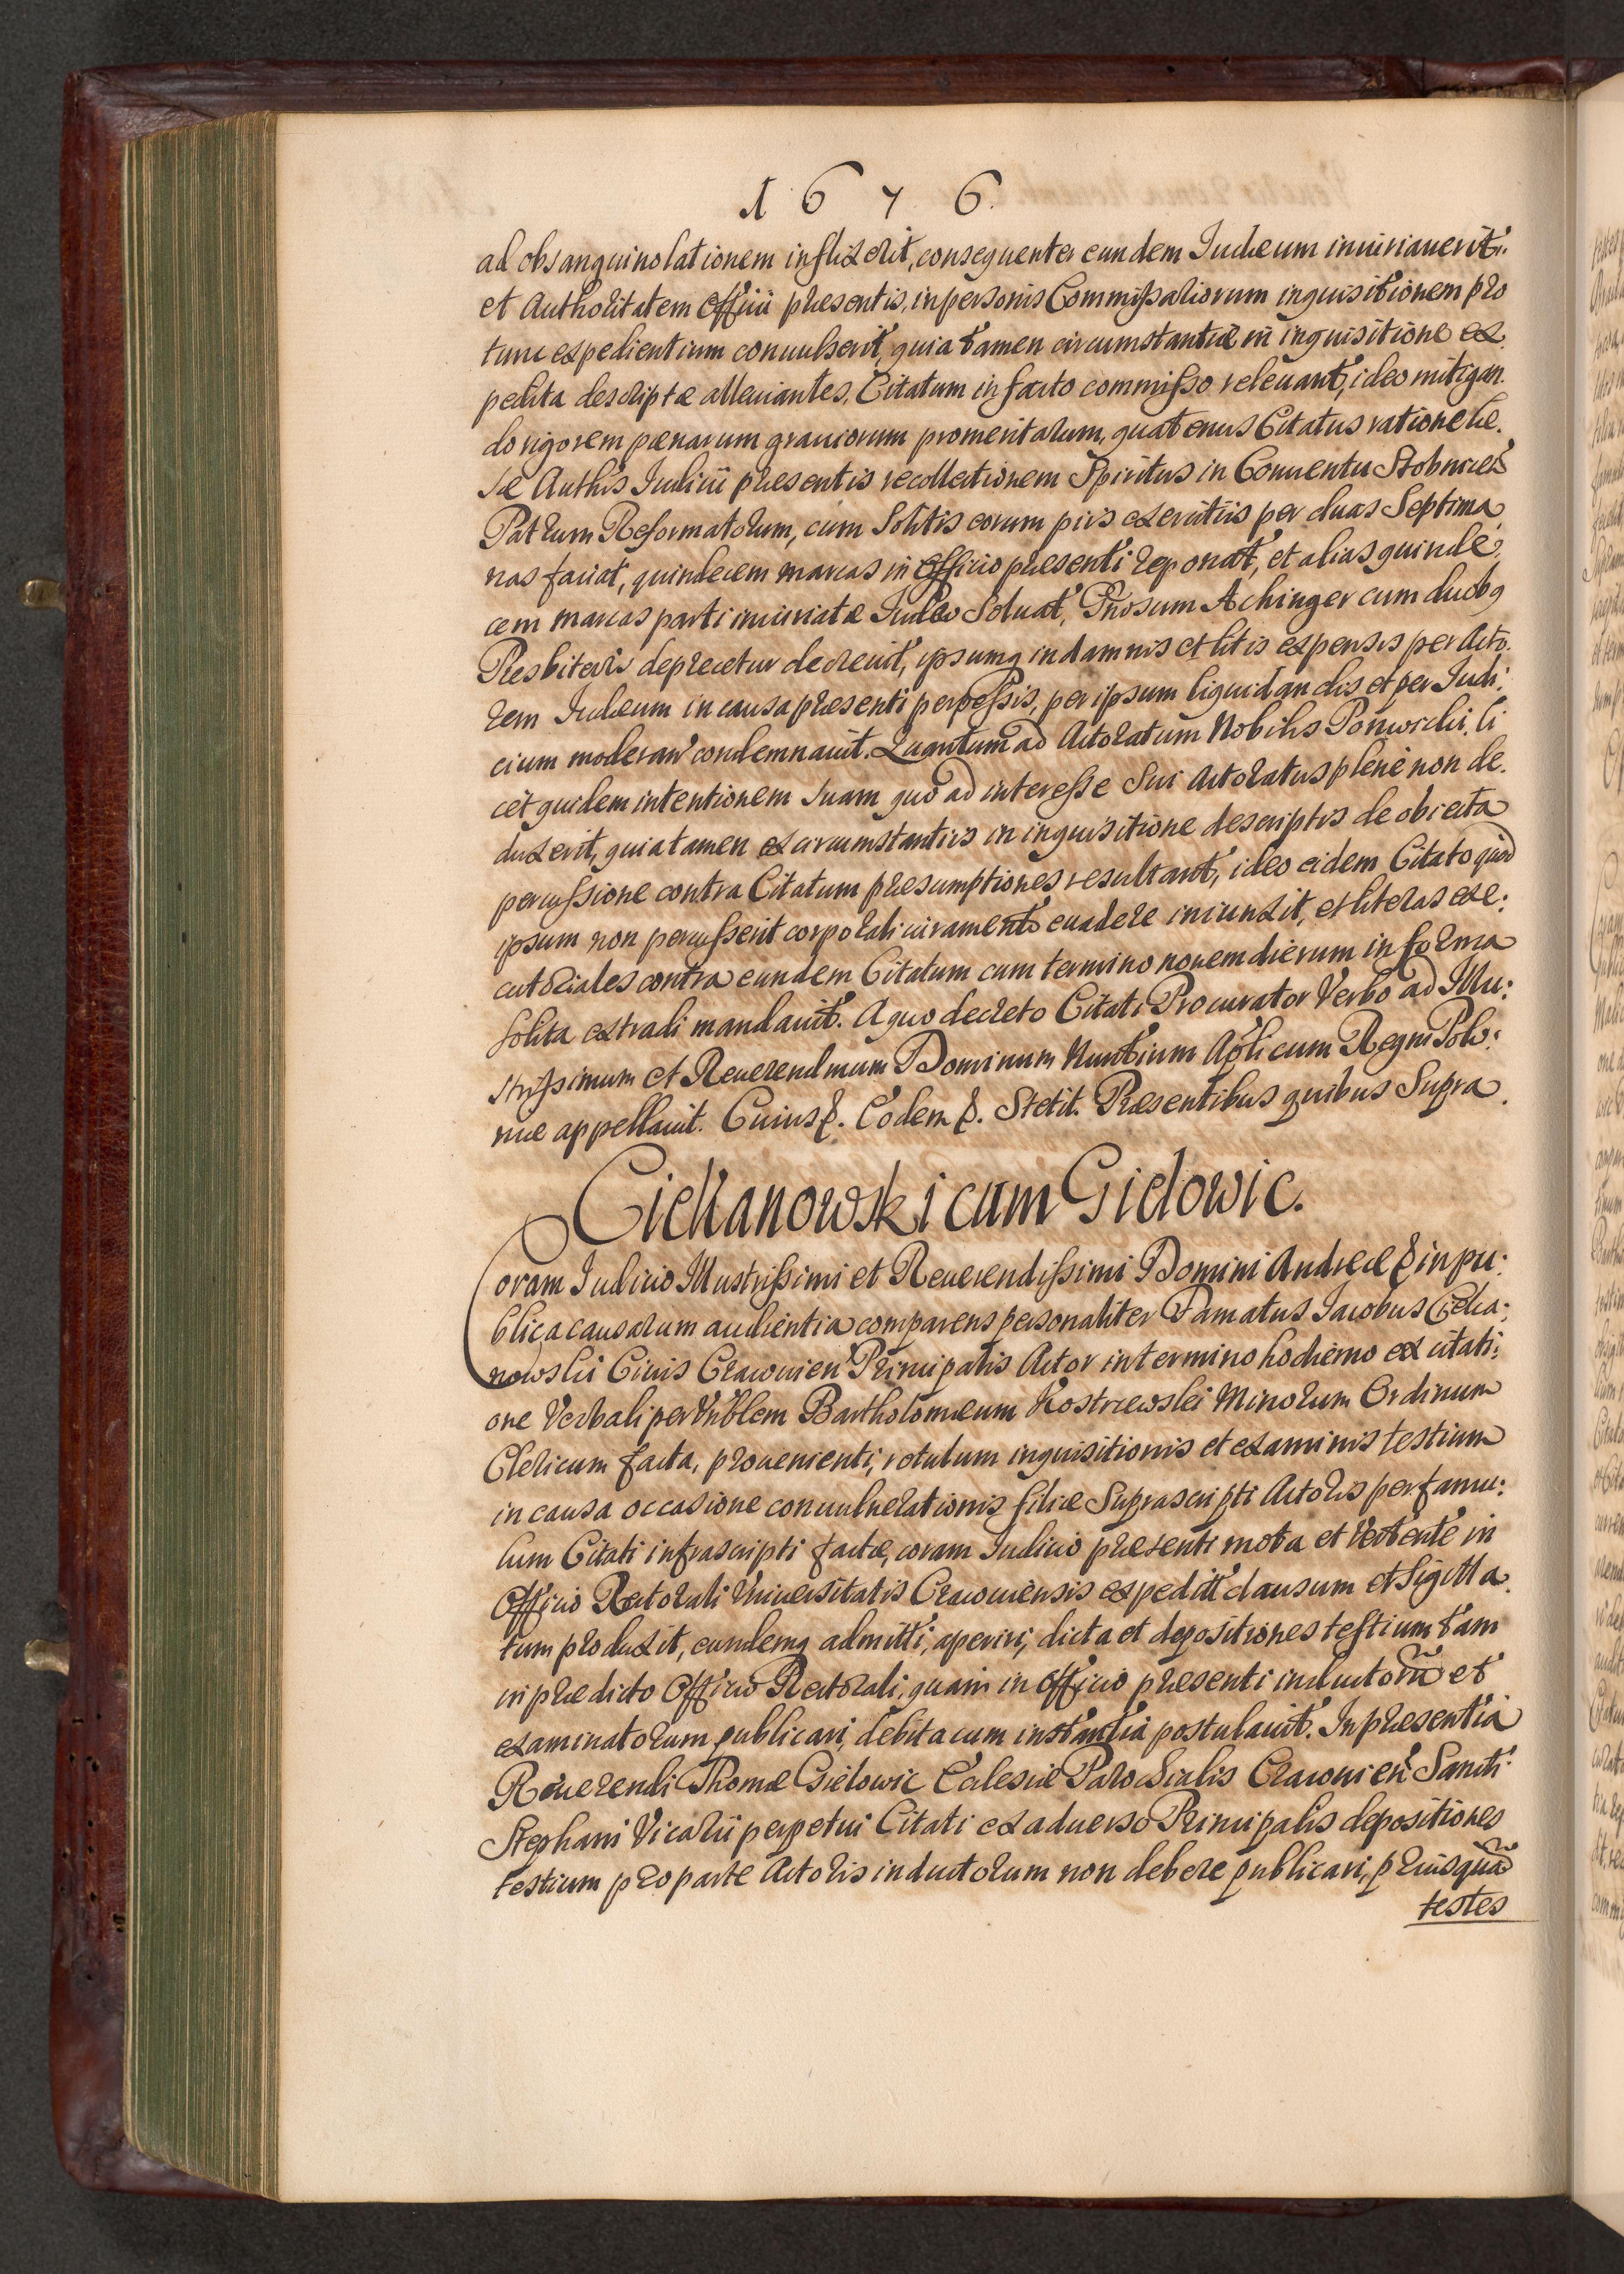 1676.
ad obsanguinolationem inflixerit, consequenter eundem Iudæum iniuriauerit:
et Authoritatem Offÿii præsentis, in personis Commissariorum inquisitionem pro
tunc expedientium conuulserit, quia tamen circumstantiæ in inquisitione ex
pedita descriptæ alleuiantes, Citatum in facto commisso releuant, ideo mitigan.
do rigorem pænarum grauiorum promeritarum, quatenus Citatus ratione læ.
sæ Authis Iudicii præsentis recollectionem Spiritus in Conuentu Stobnicen
Patrum Reformatorum, cum Solitis eorum piis exercitiis per duas Septima
nas faciat, quindecem marcas in Officio præsenti reponat, et alias quinde.
cem marcas parti iniuriatæ Iudæo Soluat, Gnosum Achinger cum duobq
Presbiteris deprecetur decreuit, ipsumq in damnis et litis expensis per Acto.
rem Iudæum in causa præsenti perpessis, per ipsum liquidandis et per Iudi:
cium moderan condemnauit. Quantum ad Actoratum Nobilis Ponwicki, li
cet quidem intentionem suam quo ad interesse Sui Actoratus plenè non de.
duxerit, quia tamen ex circumstantiis in inquisitione descriptis de obiecta
percussione contra Citatum præsumptiones resultant, ideo eidem Citato quod
ipsum non percusserit corporali iuramento euadere iniunxit, et literas exe:
cutoriales contra eundem Citatum cum termino nouem dierum in forma
solita extradi mandauit. A quo decreto Citati Procurator Verbo ad Illu:
strissimum et Reuerendmum Dominum Nuntium Aplicum Regni Polo:
niæ appellauit. Cuius &. Eodem &. Stetit. Præsentibus quibus Supra.
Ciekanowski cum Gielowic.
Coram Iudicio Illustrissimi et Reuerendissimi Domini Andreæ & in pu:
blica causarum audientia comparens personaliter Famatus Iacobus Cieka:
nowski Ciuis Cracouien Principalis Actor in termino hodierno ex citati:
one Verbali per Vnblem Bartholomæum Kostrzewski Minorum Ordinum
Clericum facta, prouenienti, rotulum inquisitionis et examinis testium
in causa occasione conuulnerationis filiæ Suprascripti Actoris per famu:
lum Citati infrascripti factæ, coram Iudicio præsenti mota et Vertente in
Officio Rectorali Vniuersitatis Cracouiensis expedit clausum et Sigilla.
tum produxit, eundemq admitti, aperiri, dicta et depositiones testium tam
in prædicto Officio Rectorali, quam in officio præsenti inductorũ et
examinatorum publicari, debita cum instantia postulauit. In præsentia
Reuerendi Thomæ Gielowic Ecclesiæ Parochialis Cracouien Sancti
Stephani Vicarii perpetui Citati ex aduerso Principalis depositiones
testium pro parte Actoris inductorum non debere publicari, priusquã
testes